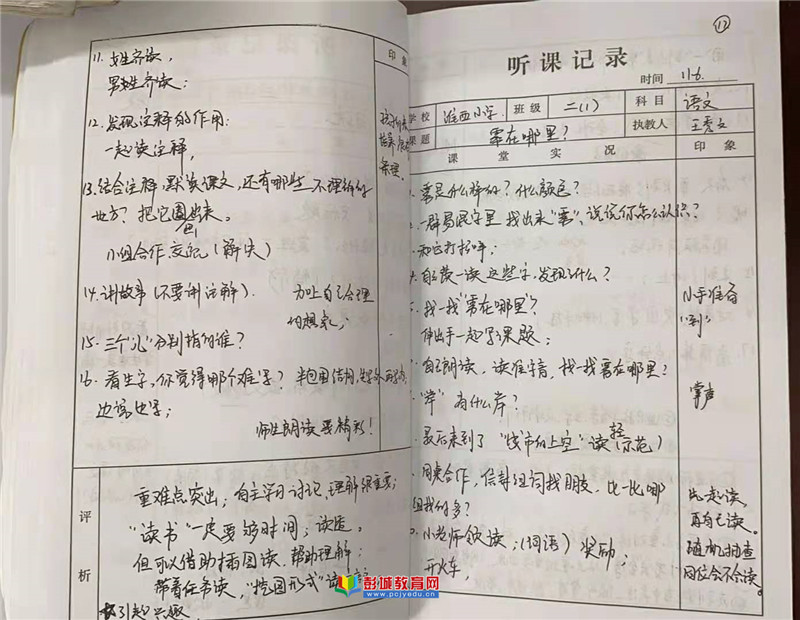 11. 女生齐读,
男生齐读:
印象
12. 发现注释的作用:
一起读注释,
13. 结合注释,默读课文,还有哪些不理解的
地方?把它圈出来。
画
小组合作交流(解决)
14. 讲故事(不要讲注解). 加上自己合理
的想象;
15. 三个"心"分别指的谁?
16. 看生字,你觉得哪个难写?半包围结构,先
边说边写;
师生朗读要精彩!
评析
重难点突出;自主学习讨论,理解很重要;
"读书"一定要够时间;读透,
但可以借助插图读,帮助理解;
带着任务读,"挖图形式"读
引起兴趣
12
听课记录
时间 11.6.
学校 淮西小学 班级 二(1) 科目 语文
课题 雾在哪里? 执教人 王秀文
课堂实况 印象
雾是什么样的?什么颜色?
一群易混字里找出来"雾",说说你怎么认识?
和它打招呼;
自己读一读这些字,发现了什么?
找一找"雾在哪里"?
伸出手一起写课题;
小手准备
"到"
自己朗读,读准字音,找一找雾在哪里?
"岸"有什么岸?
掌声
最后来到了"城市的上空"读轻(示范)
同桌合作,给字组词找朋友,比一比哪
组找的多?
小老师领读;(词语)奖励;
开火车,
一起读,
再自己读。
随机抽查
同位会不会读。
彭城教育网
www.pcjyedu.cn